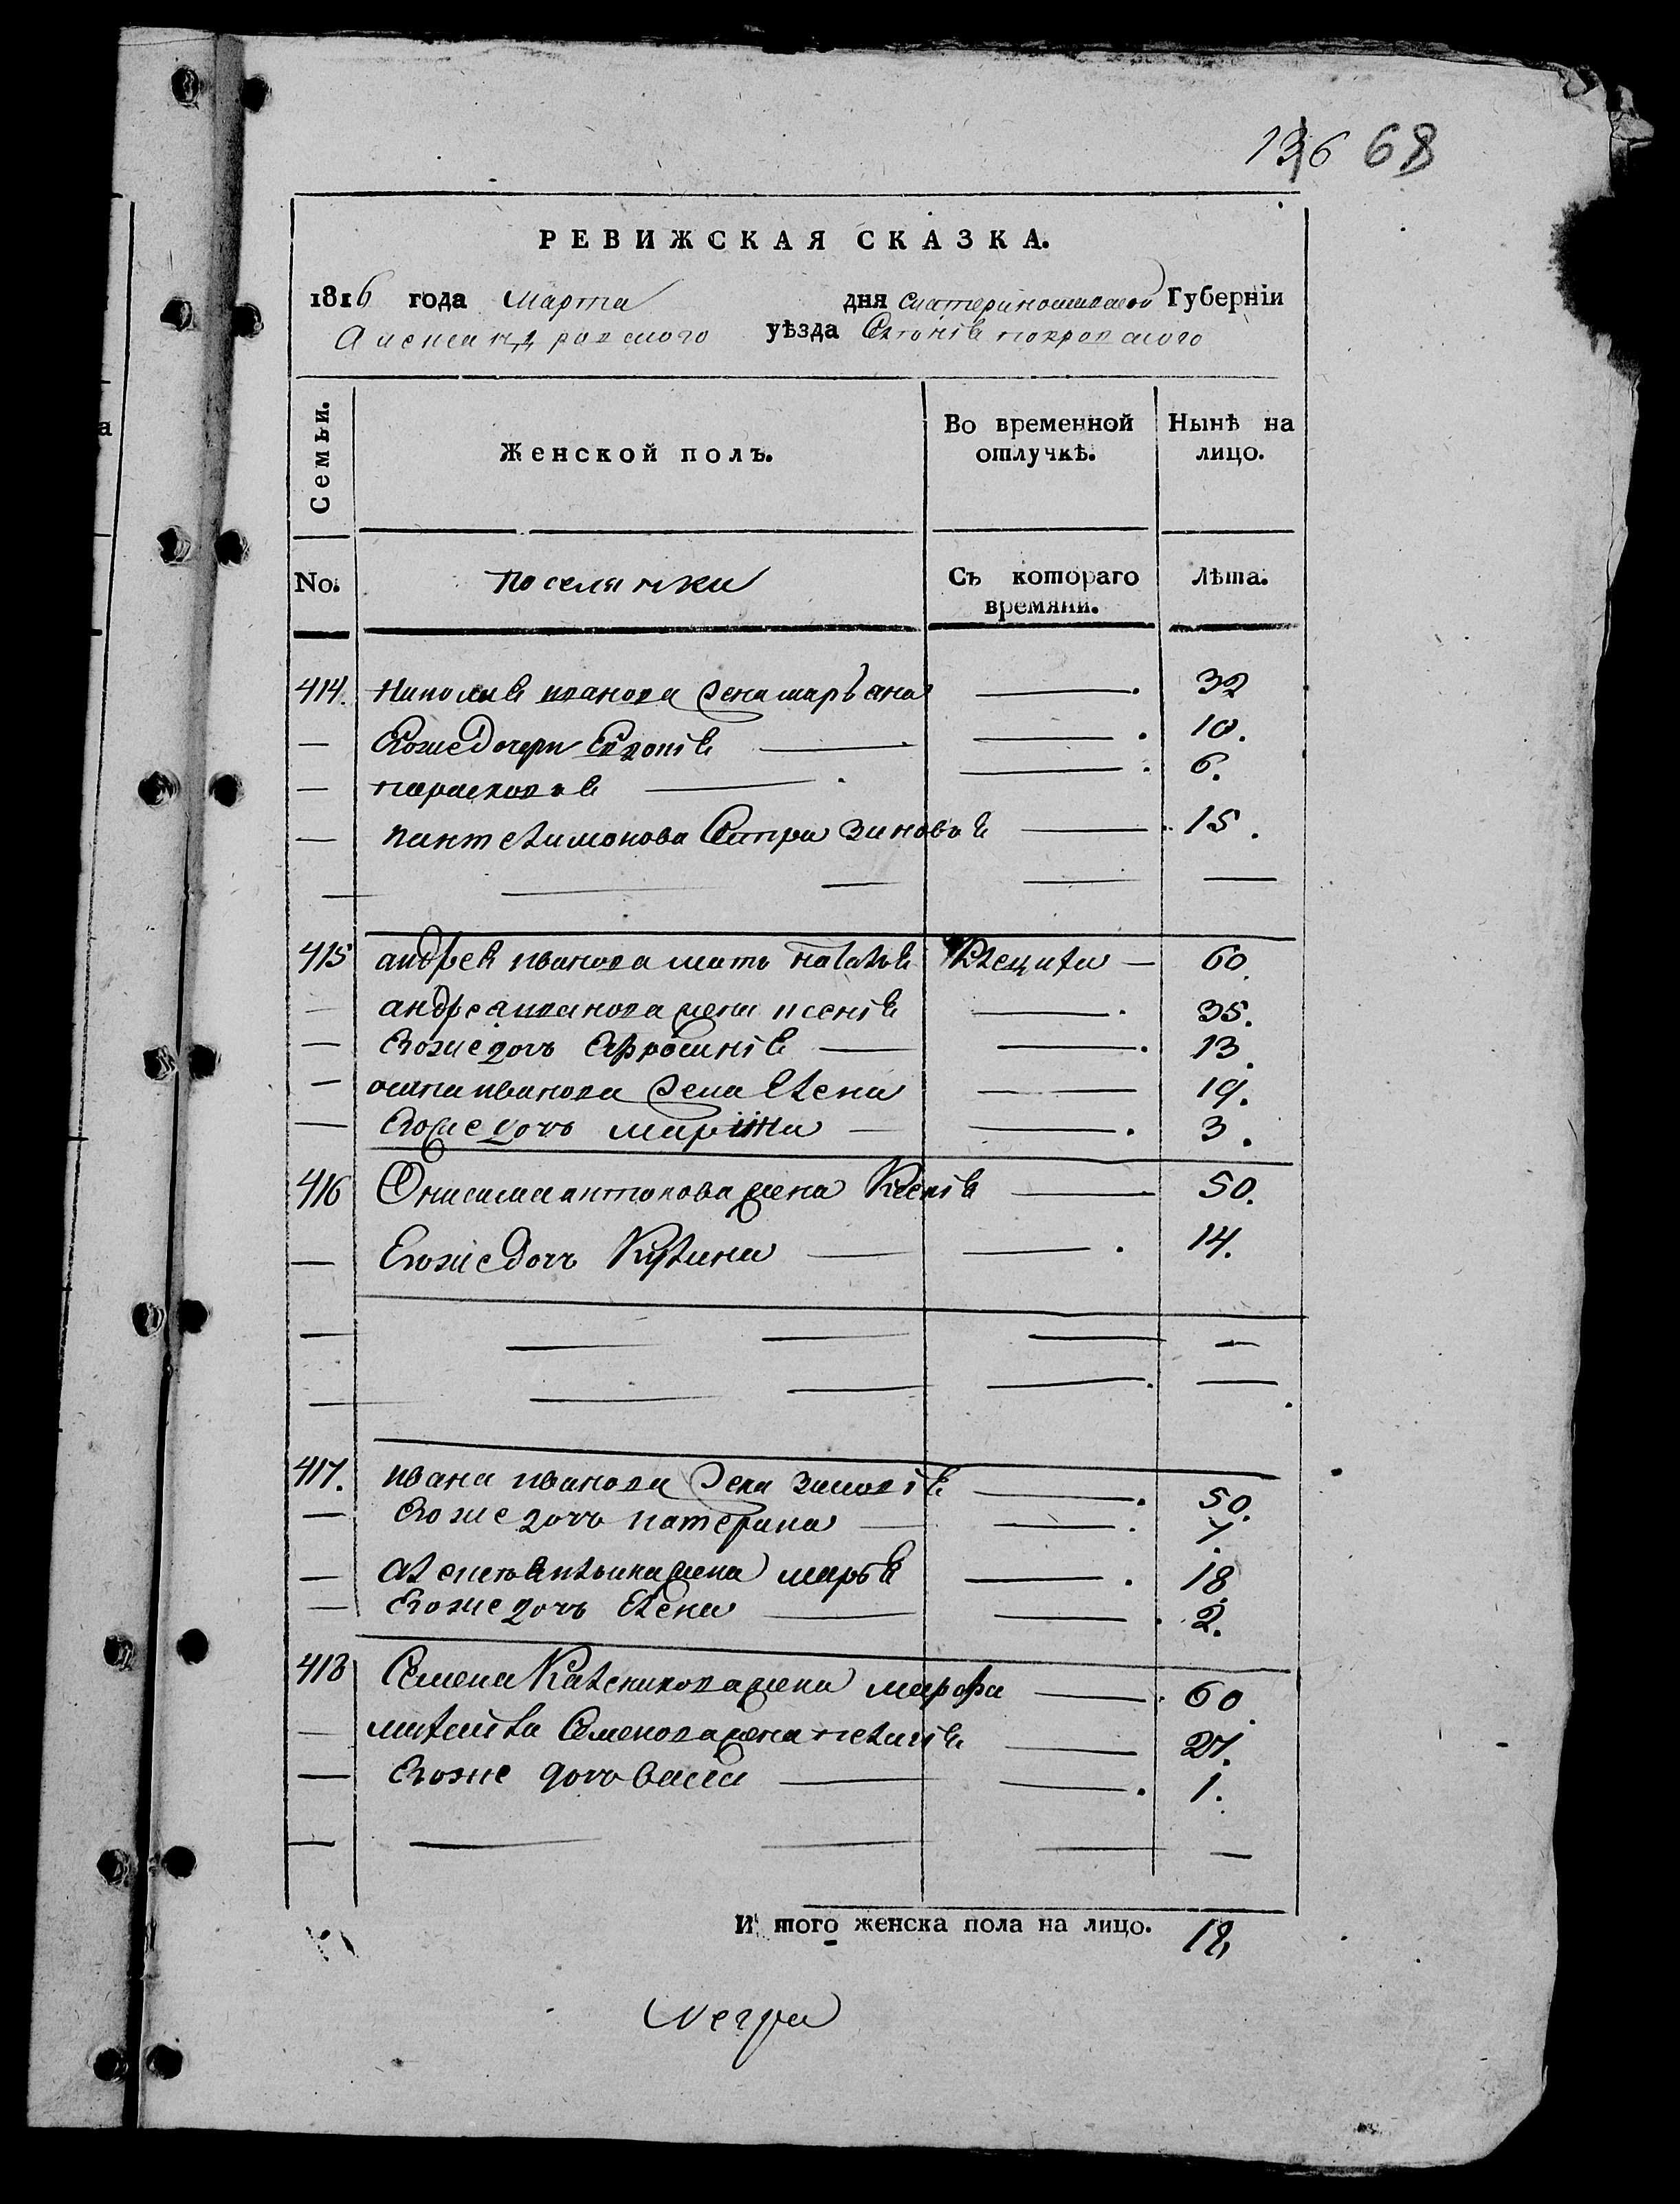 136 68
РЕВИЖСКАЯ СКАЗКА.
1816 года Марта дня Екатериносшавской Губерніи
Александровского уѣзда Селенія покровского
Семьи.
Женской полъ.
Во временной отлучкѣ.
Нынѣ на лицо.
No.
поселянки
Съ котораго времяни.
Лѣта.
414. Николая иванова жена марьяна 32
Егоже дочери Евдокія 10.
парасковія 6.
пантелимонова Сестра Зиновія 15.
415 андрея иванова мать наталья 60.
андрея иванова жена ксенія 35.
Егоже дочь Ефросинія 13.
осипа иванова жена Елена 19.
Егоже дочь 3.
416 Онисима антонова жена Ксенія 50.
Егоже дочь Кулина 14.
417. ивана иванова жена зиновія 50.
Егоже дочь катерина 7.
жена марья 18
Егоже дочь Елена 2.
418 Семена жена марфа 60.
матвея Семенова жена пелагія 27.
Егоже дочь васса 1.
И того женска пола на лицо. 18,